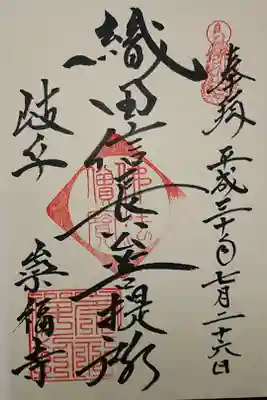 奉拝 平成三十年七月二十六日
織田信長菩提所
佛法僧寶
岐阜 崇福寺